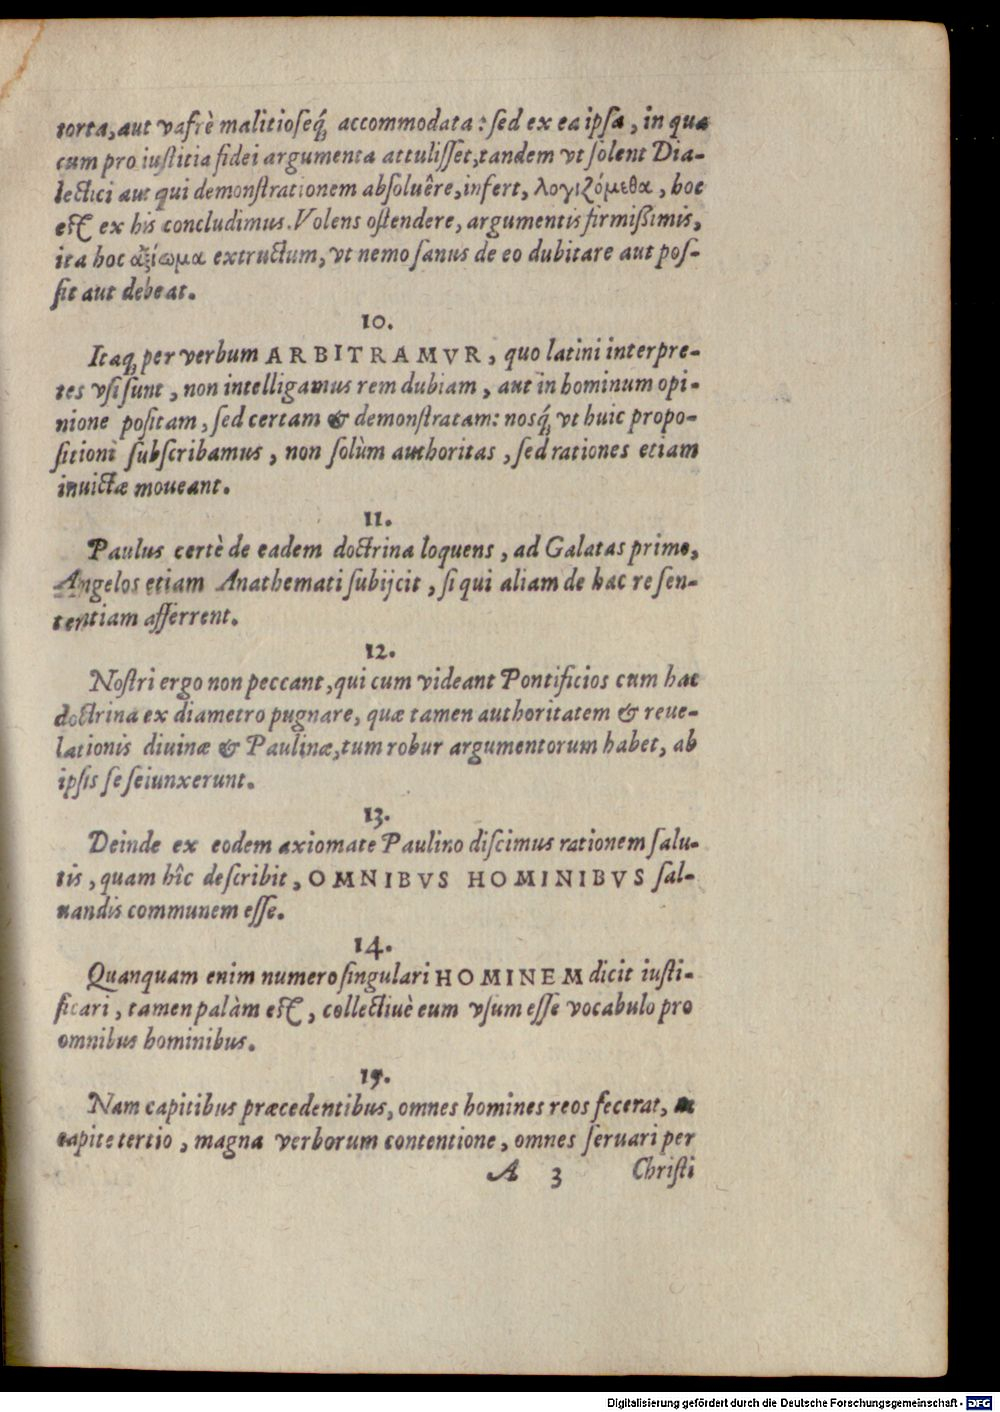 torta, aut vafrè malitioseq́; accommodata: sed ex ea ipsa, in qua
cum pro iustitia fidei argumenta attulisset, tandem vt solent Dia-
lectici aut qui demonstrationem absoluêre, infert, λογιζόμεθα, hoc
est ex his concludimus. Volens ostendere, argumentis firmißimis,
ita hoc ἀξίωμα extructum, vt nemo sanus de eo dubitare aut pos-
sit aut debeat.
10.
Itaq; per verbum ARBITRAMVR, quo latini interpre-
tes vsi sunt, non intelligamus rem dubiam, aut in hominum opi-
nione positam, sed certam & demonstratam: nosq́; vt huic propo-
sitioni subscribamus, non solùm authoritas, sed rationes etiam
inuictæ moueant.
11.
Paulus certè de eadem doctrina loquens, ad Galatas primo,
Angelos etiam Anathemati subijcit, si qui aliam de hac re sen-
tentiam afferrent.
12.
Nostri ergo non peccant, qui cum videant Pontificios cum hac
doctrina ex diametro pugnare, quæ tamen authoritatem & reue-
lationis diuinæ & Paulinæ, tum robur argumentorum habet, ab
ipsis se seiunxerunt.
13.
Deinde ex eodem axiomate Paulino discimus rationem salu-
tis, quam hîc describit, OMNIBVS HOMINIBVS sal-
uandis communem esse.
14.
Quanquam enim numero singulari HOMINEM dicit iusti-
ficari, tamen palàm est, collectiuè eum vsum esse vocabulo pro
omnibus hominibus.
15.
Nam capitibus præcedentibus, omnes homines reos fecerat,
capite tertio, magna verborum contentione, omnes seruari per
A 3 Christi
Digitalisierung gefördert durch die Deutsche Forschungsgemeinschaft - DFG